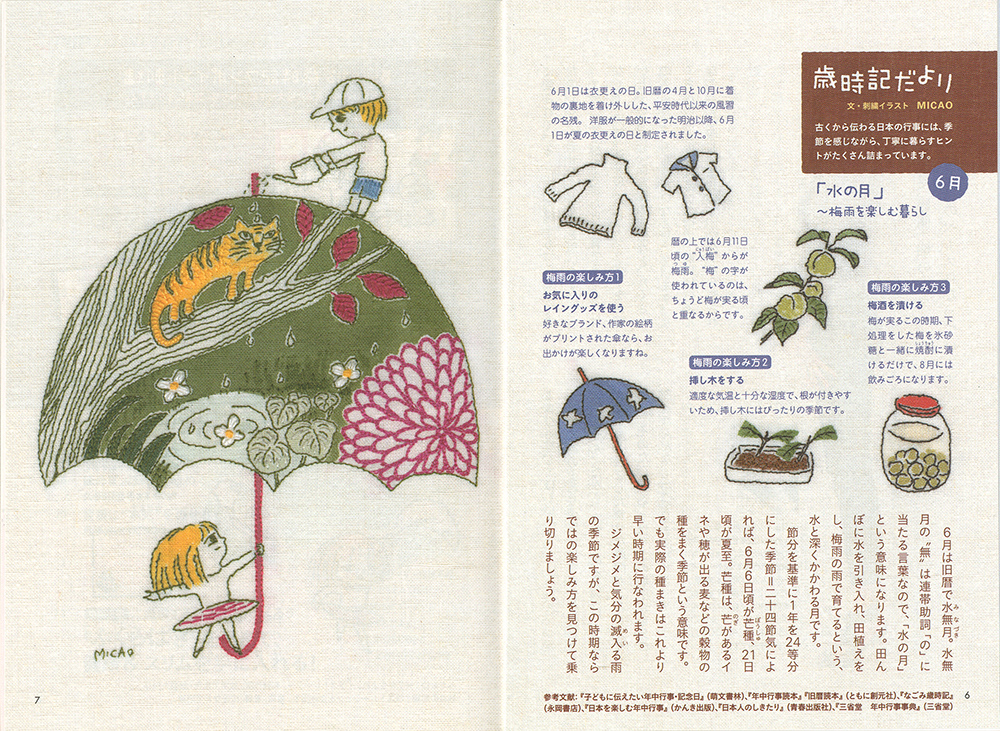 歳時記だより
文・刺繍イラスト MICAO
古くから伝わる日本の行事には、季
節を感じながら、丁寧に暮らすヒン
トがたくさん詰まっています。
6月
「水の月」
〜梅雨を楽しむ暮らし
6月1日は衣更えの日。旧暦の4月と10月に着
物の裏地を着け外しした、平安時代以来の風習
の名残。 洋服が一般的になった明治以降、6月
1日が夏の衣更えの日と制定されました。
暦の上では6月11日
頃の“入梅”からが
梅雨。“梅”の字が
使われているのは、
ちょうど梅が実る頃
と重なるからです。
梅雨の楽しみ方1
お気に入りの
レイングッズを使う
好きなブランド、作家の絵柄
がプリントされた傘なら、お
出かけが楽しくなりますね。
梅雨の楽しみ方2
挿し木をする
適度な気温と十分な湿度で、根が付きやす
いため、挿し木にはぴったりの季節です。
梅雨の楽しみ方3
梅酒を漬ける
梅が実るこの時期、下
処理をした梅を氷砂
糖と一緒に焼酎に漬
けるだけで、8月には
飲みごろになります。
6月は旧暦で水無月。水無
月の“無”は連帯助詞「の」に
当たる言葉なので、「水の月」
という意味になります。田ん
ぼに水を引き入れ、田植えを
し、梅雨の雨で育てるという、
水と深くかかわる月です。
節分を基準に1年を24等分
にした季節＝二十四節気によ
れば、6月6日頃が芒種。21日
頃が夏至。芒種は、芒があるイ
ネや穂が出る麦などの穀物の
種をまく季節という意味です。
でも実際の種まきはこれより
早い時期に行なわれます。
ジメジメと気分の滅入る雨
の季節ですが、この時期なら
ではの楽しみ方を見つけて乗
り切りましょう。
参考文献：『子どもに伝えたい年中行事・記念日』（萌文書林）、『年中行事読本』『旧暦読本』（ともに創元社）、『なごみ歳時記』
（永岡書店）、『日本を楽しむ年中行事』（かんき出版）、『日本人のしきたり』（青春出版社）、『三省堂 年中行事事典』（三省堂）
6
MICAO
7